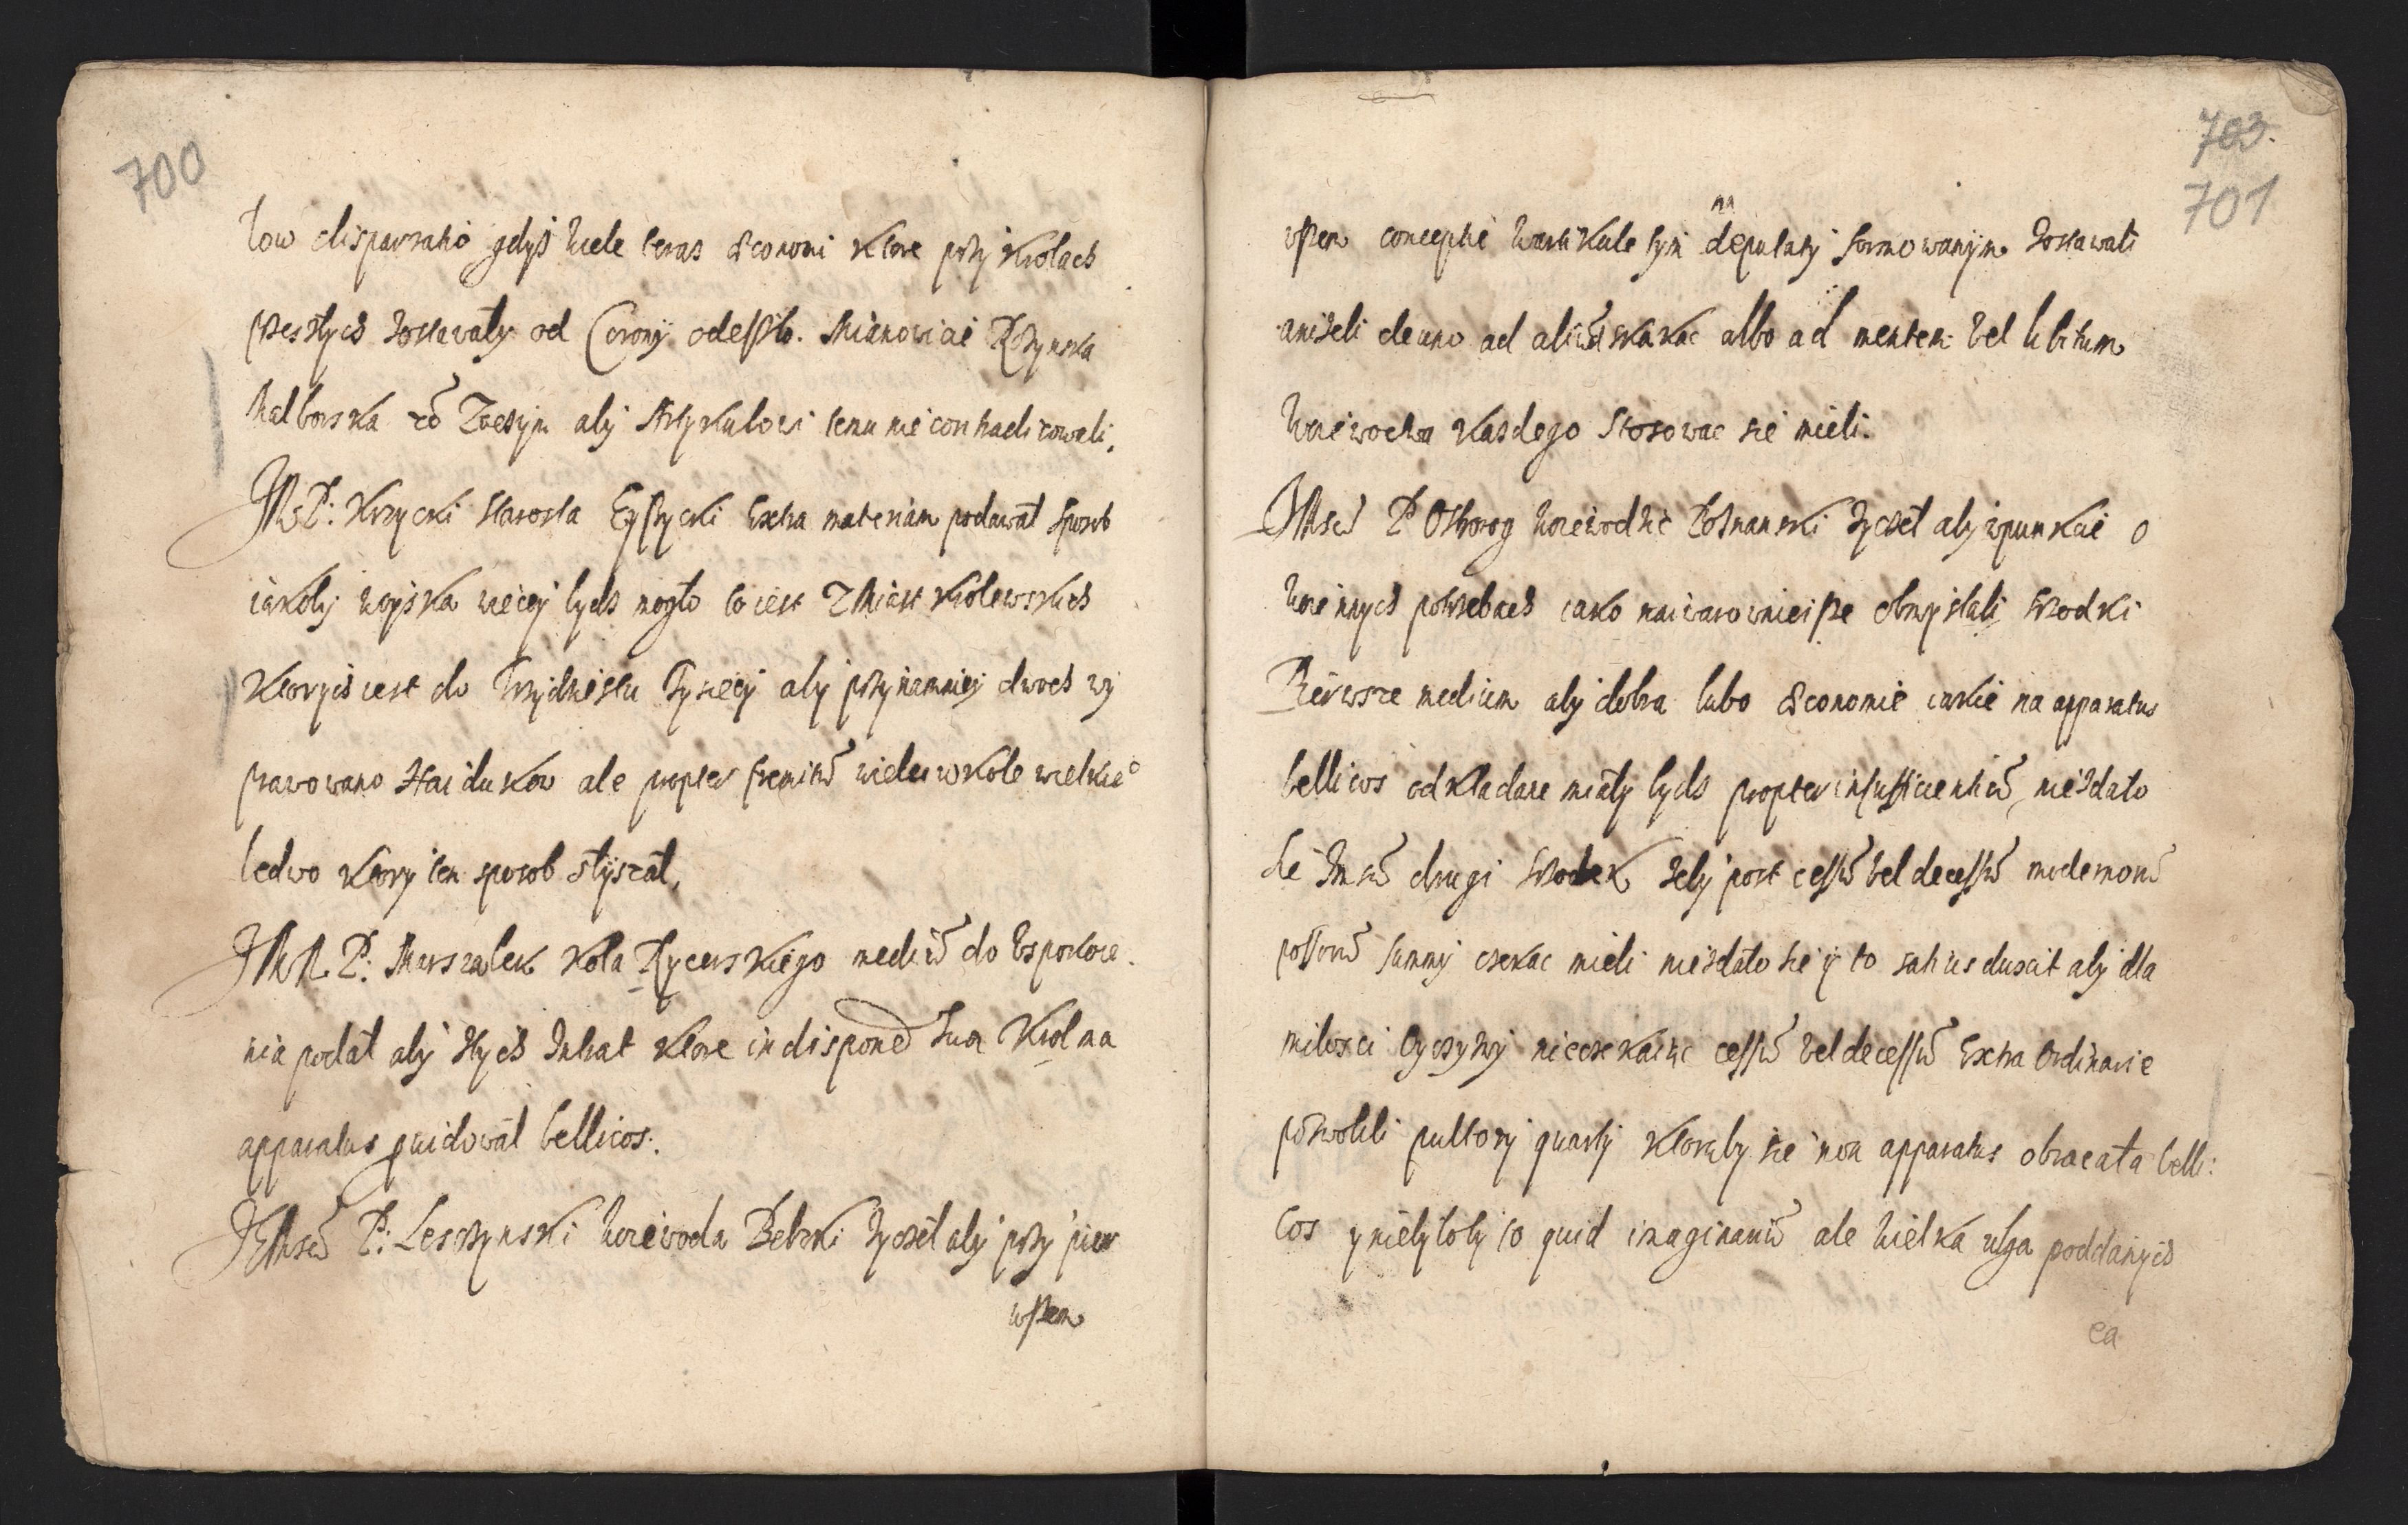 700
low disparatio gdyż wiele teras Economi ktore przy krolach
przeszłych zostawały od Corony odeszło. Mianowicie Rożynska
Malborska aby Artykułowi temu nie contradicowali.
JMP: Krzycki Starosta Extra materiam podawał sposob
iakoby woyska więcey bydz mogło to iest z Miast krolewskich
ktorych iest do Trzydziestu Tysięcy aby przynamniey dwoch wy
prawowano Haidukow ale propter fremitu wielu w kole wielkie
ledwo ktory ten sposob słyszał.
P: Marszałek Koła Rycerskiego mediu do Uspokoie
nia podał aby z tych Intrat ktore in dispone sua Krol ma
apparatus bellicos.
P: Lesczynski Woiewoda Bełzki zyczeł aby przy pier
wszem
703.
701
wszem concepcie w artikule tym na deputaty formowanym zostawali
anizeli de uno ad aliud skakac albo ad mentem vel libitum
Woiewodztwa kazdego stosowac sie mieli.
P Ostrorog Woiewodzic Poznanski zyczeł aby w punkcie o
woiennych potrzebach iako naiwarowniejsze obmyslali srzodki
Pierwsze medium aby dobra lubo Economie iakie na apparatus
bellicos odkładane miały bydz propter insufficientiu, nie zdało
sie drugi srzodek zeby post cessu vel decessu modernoru
possoru summy czekac mieli nie zdało sie y to satius duxit aby dla
milosci Oyczyzny nieczekaiąc cessu vel decessu Extra Ordinarie
pozwolili pułtory quarty ktoraby sie non apparatus obracała belli:
cos y nie byłoby to quid imaginariu ale wielka ulga poddanych
ea